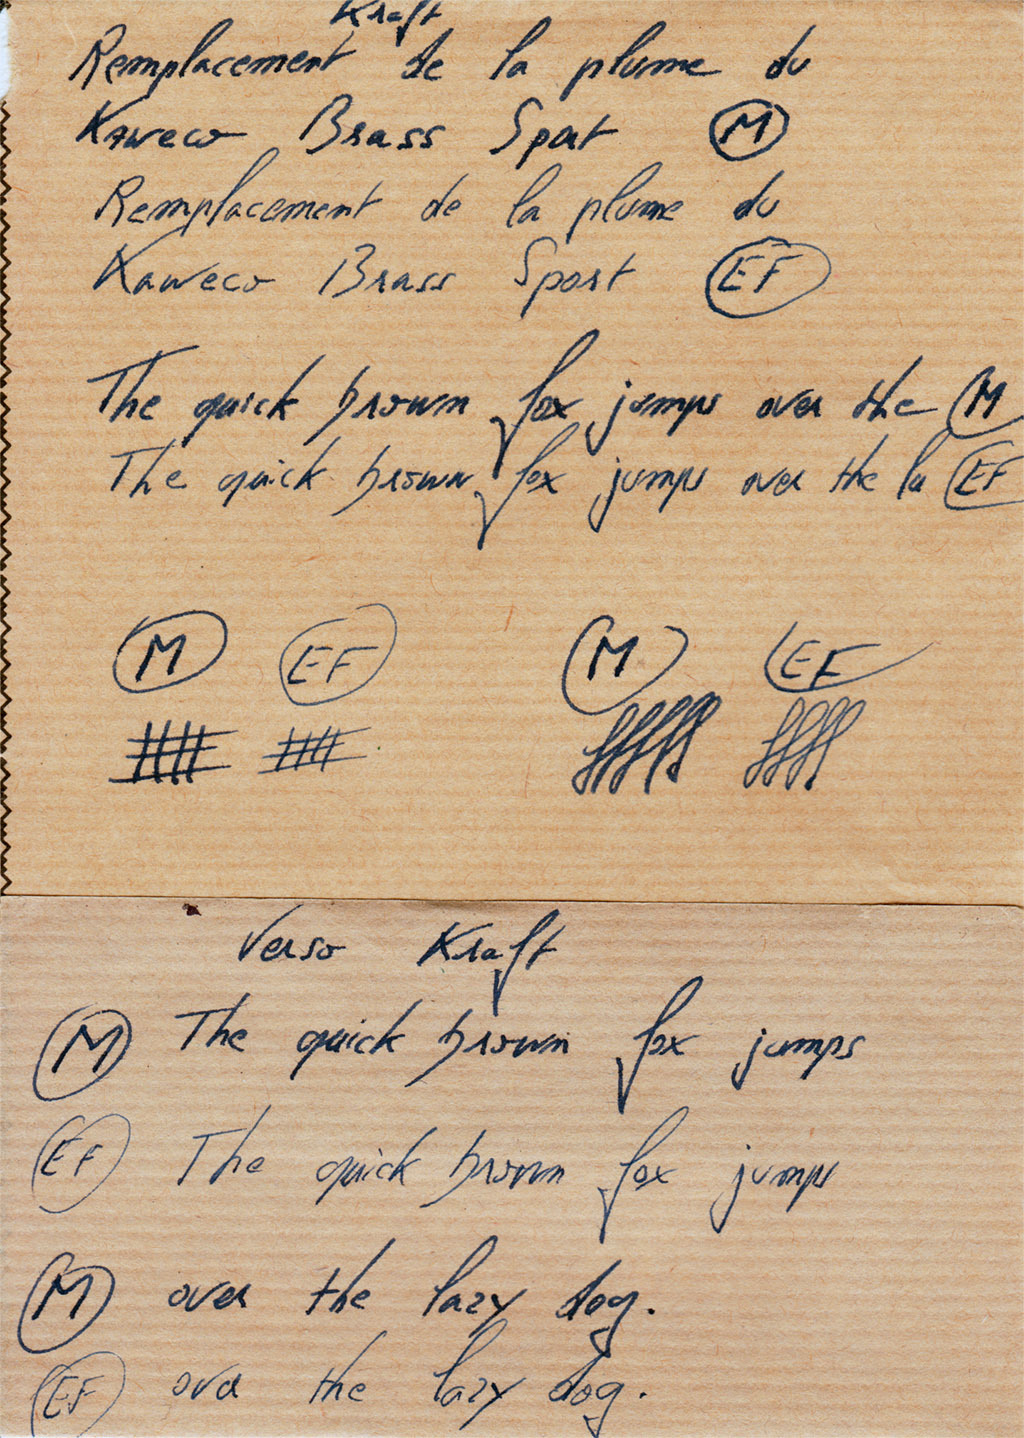 Kraft
Remplacement de la plume du
Kaweco Brass Sport M
Remplacement de la plume du
Kaweco Brass Sport EF
The quick brown fox jumps over the M
The quick brown fox jumps over the la EF
M EF M EF
Verso Kraft
M The quick brown fox jumps
EF The quick brown fox jumps
M over the lazy dog.
EF over the lazy dog.